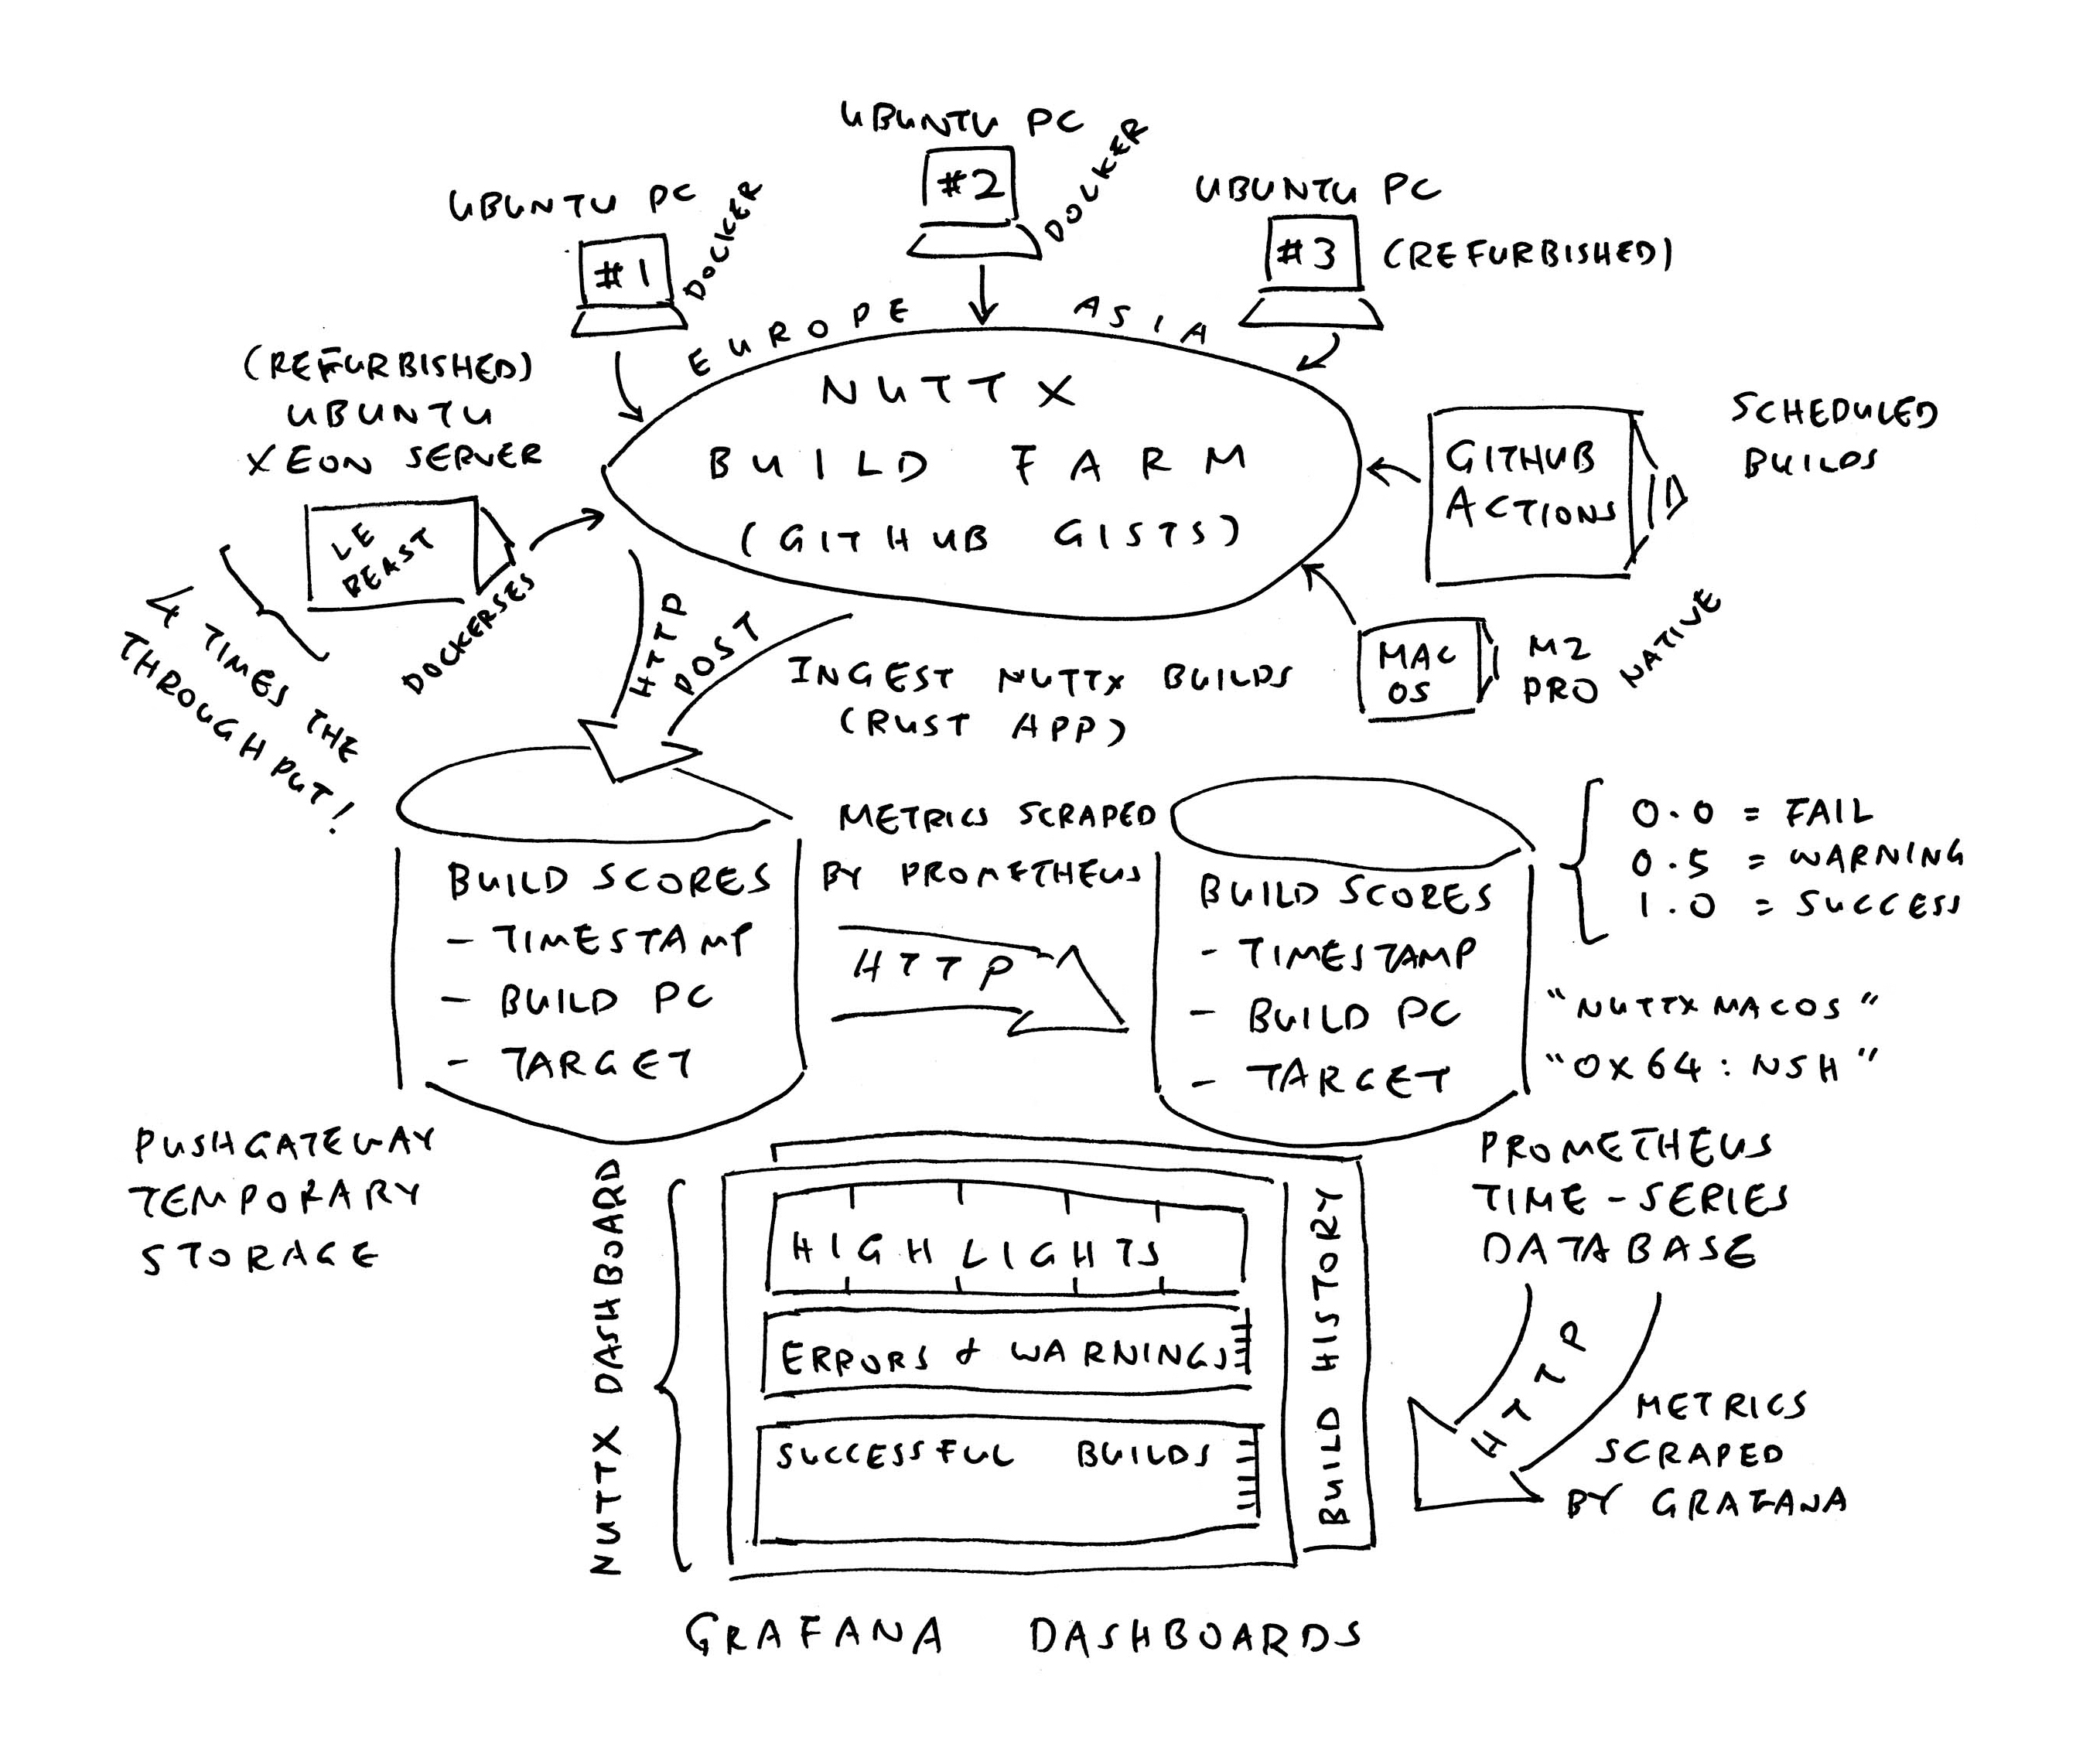 UBUNTU PC
#2
DOCKER
UBUNTU PC
#1
DOCKER
UBUNTU PC
#3
(REFURBISHED)
EUROPE
ASIA
(REFURBISHED)
UBUNTU
XEON SERVER
LE
BEAST
DOCKERSES
4 TIMES THE
THROUGHPUT!
NUTTX
BUILD FARM
(GITHUB GISTS)
GITHUB
ACTIONS
SCHEDULED
BUILDS
MAC
OS
M2
PRO
NATIVE
HTTP
POST
INGEST NUTTX BUILDS
(RUST APP)
BUILD SCORES
- TIMESTAMP
- BUILD PC
- TARGET
METRICS SCRAPED
BY PROMETHEUS
HTTP
BUILD SCORES
- TIMESTAMP
- BUILD PC
- TARGET
0.0 = FAIL
0.5 = WARNING
1.0 = SUCCESS
"NUTTXMACOS"
"OX64:NSH"
PUSHGATEWAY
TEMPORARY
STORAGE
PROMETHEUS
TIME-SERIES
DATABASE
HTTP
METRICS
SCRAPED
BY GRAFANA
NUTTX DASHBOARD
HIGHLIGHTS
ERRORS & WARNINGS
SUCCESSFUL BUILDS
BUILD HISTORY
GRAFANA DASHBOARDS